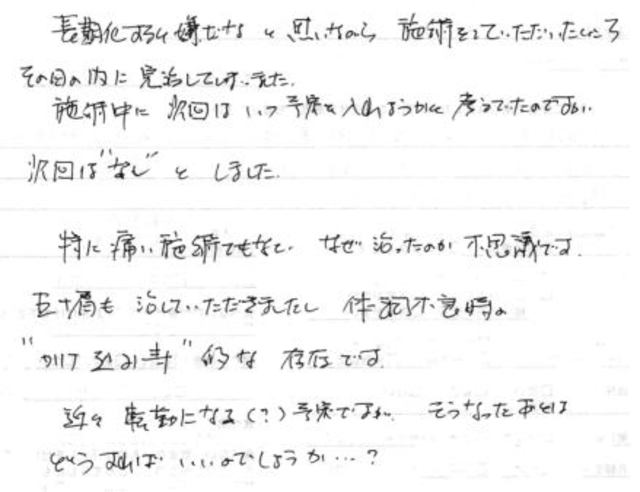 長期化すると嫌だなと思いながら施術をしていただいたところ
その日の内に完治してしまいました。
施術中に次回はいつ予定を入れようかと考えていたのですが
次回は"なし"としました。
特に痛い施術でもなく、なぜ治ったのか不思議です。
五十肩も治していただきましたし体調不良時の
"かけ込み寺"的な存在です。
近々転勤になる(?)予定ですが、そうなったあとは
どうすればいいのでしょうか…?